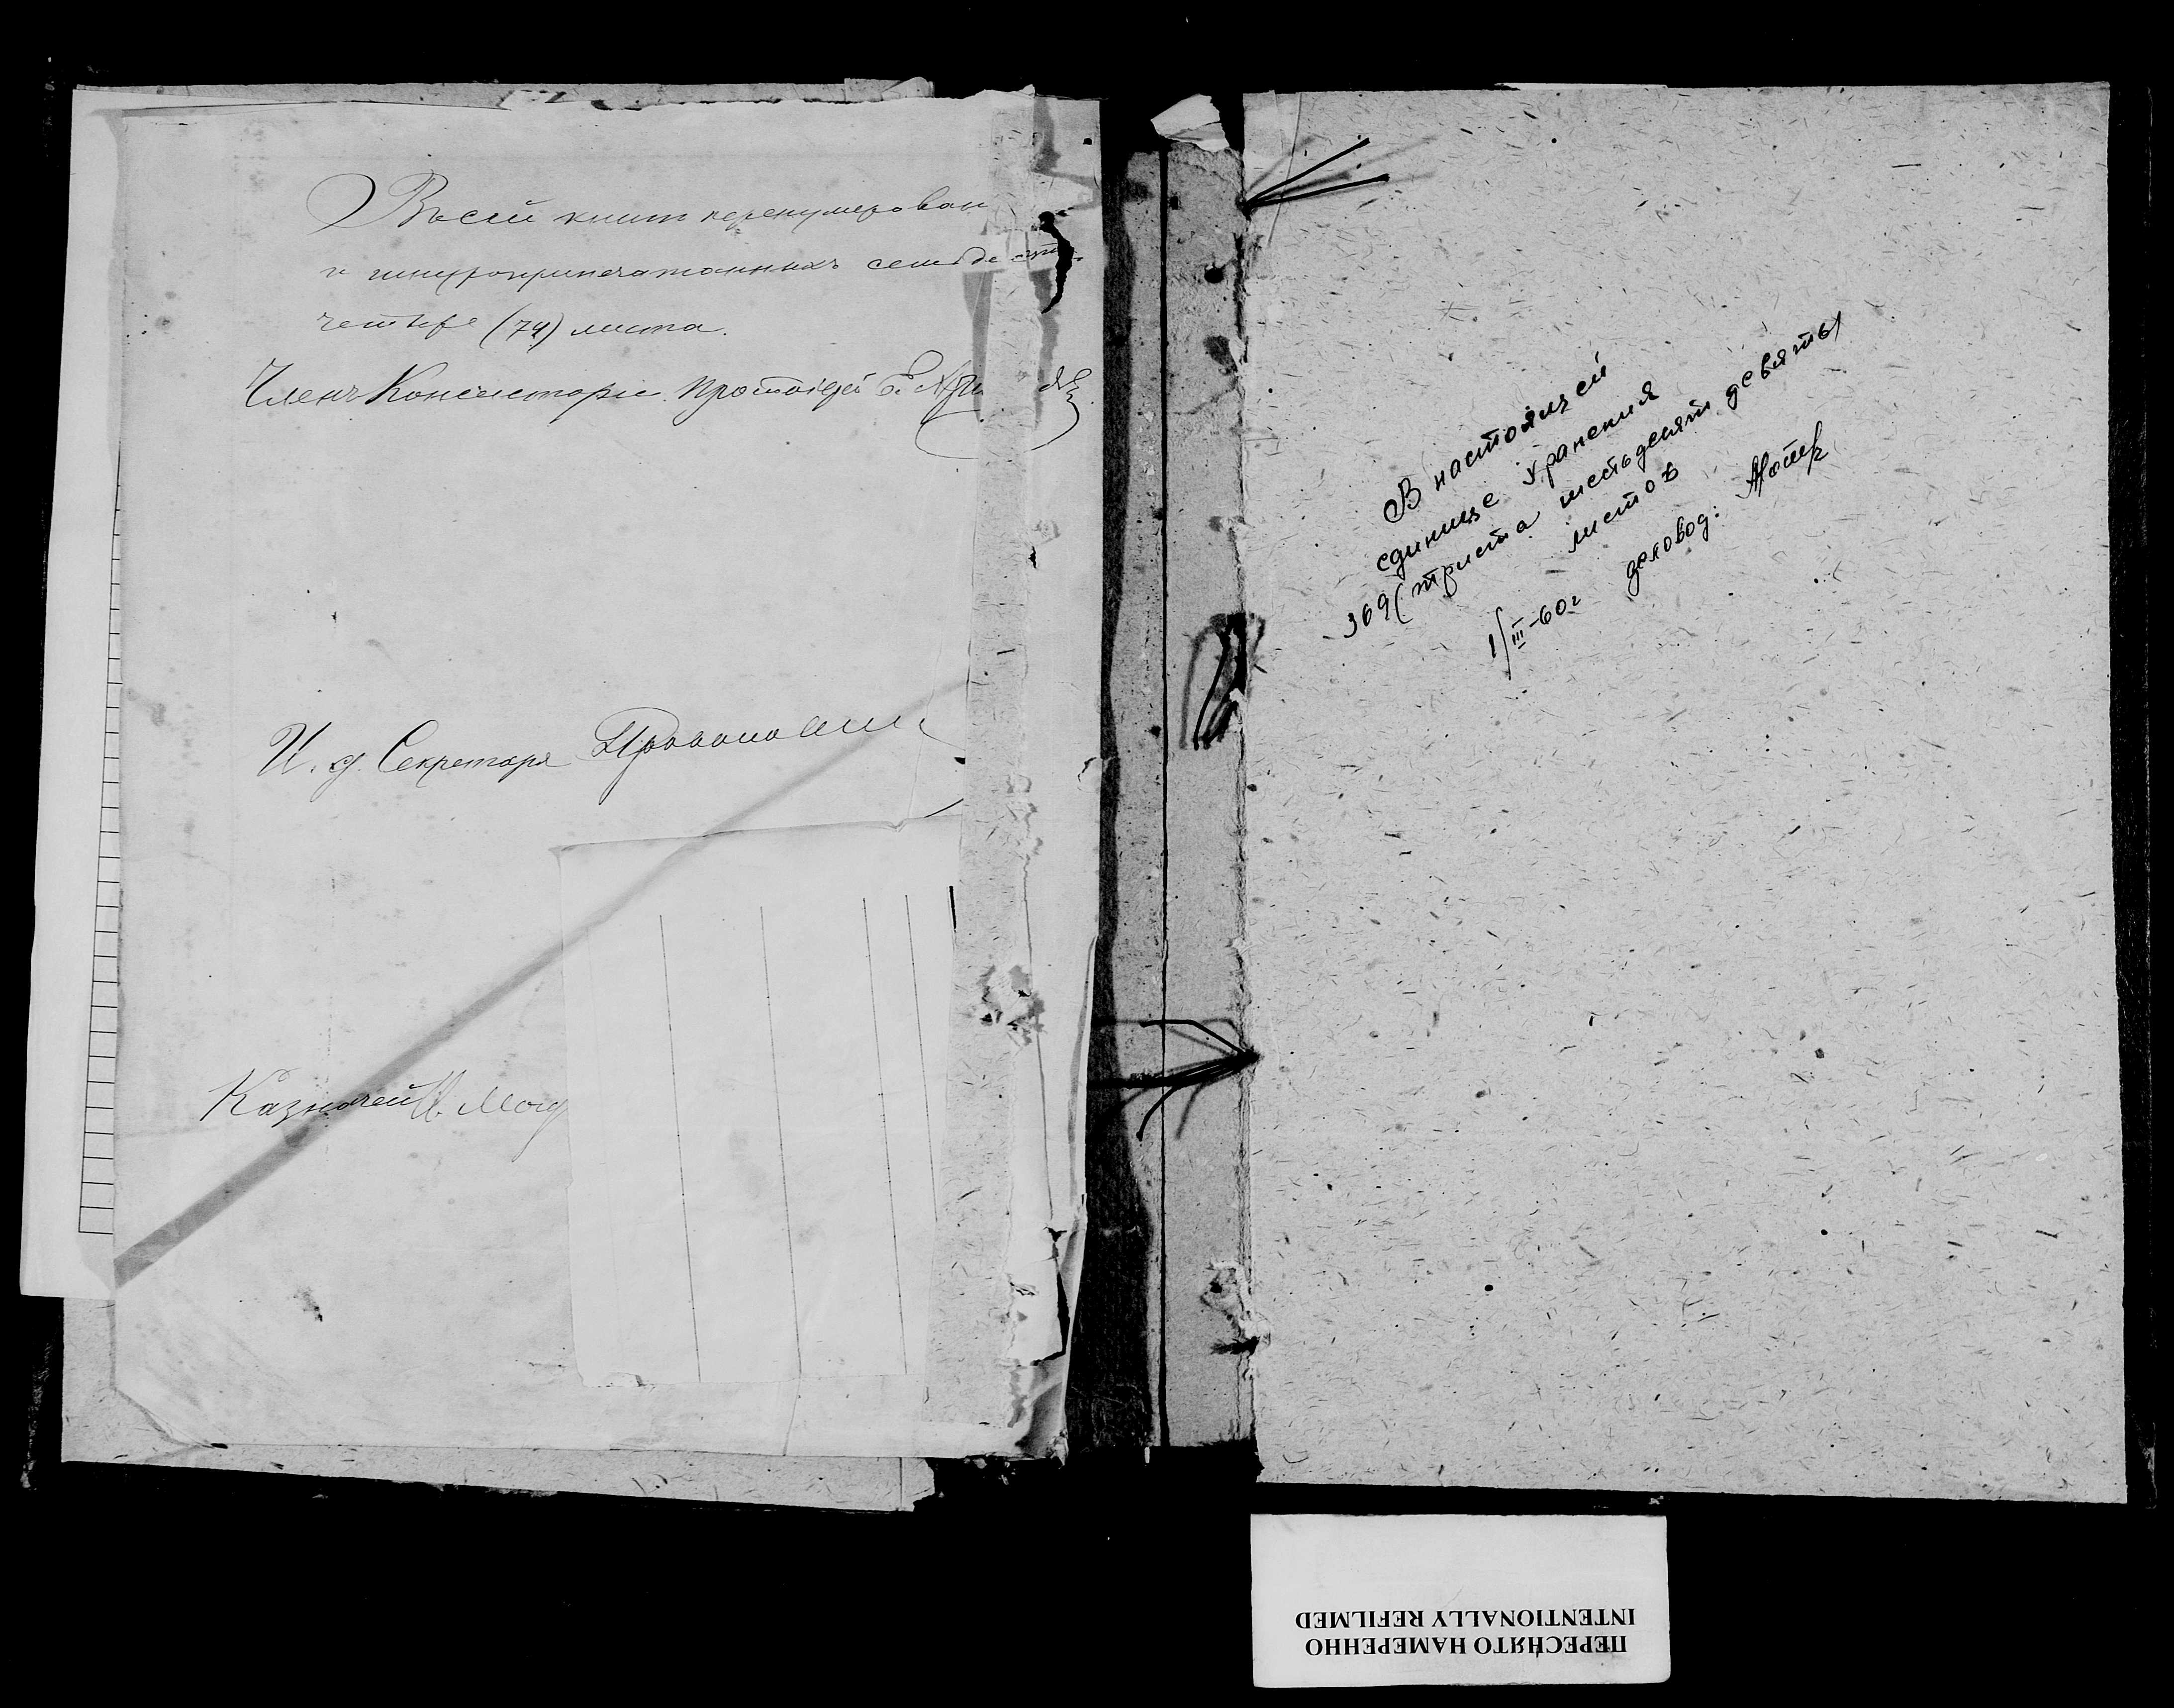 Въ сей книги перенумерован
и шнуроприпечатанныхъ семьдесятъ
четыре (74) листа.
Членъ Консисторіи протоіерей
И. д. Секретаря
Казначей И.
В настоящей
единице хранения
369 (триста шестьдесят девять)
листов
1/III-60г деловод:
ПЕРЕСНЯТО НАМЕРЕННО
INTENTIONALLY REFILMED